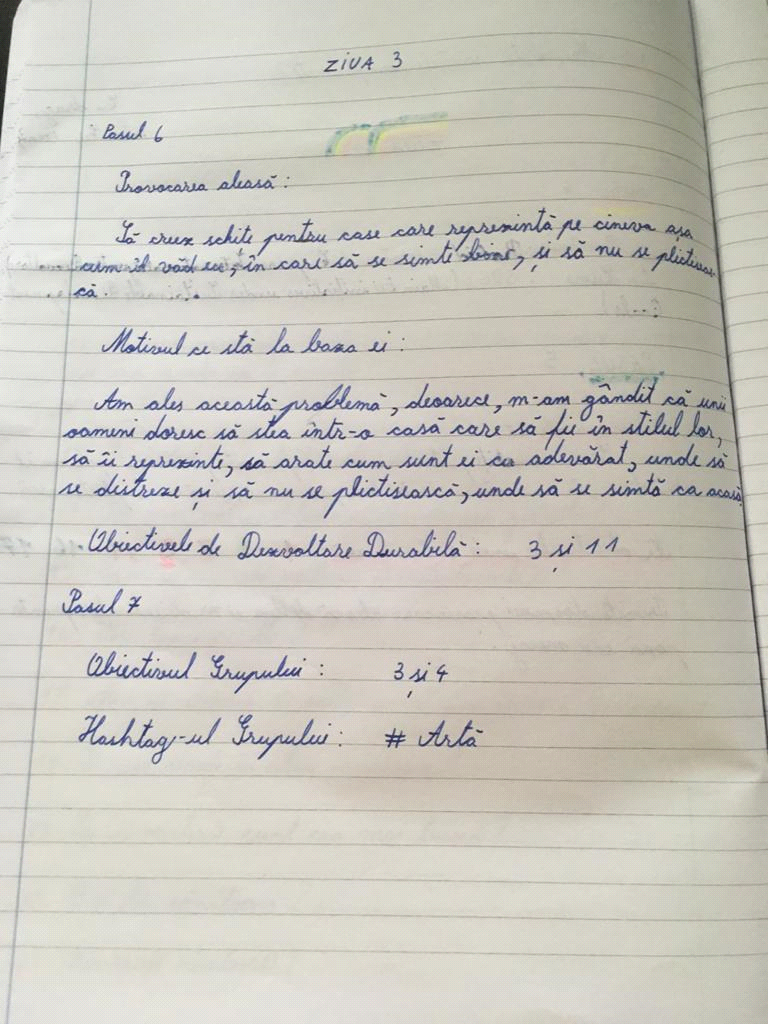 ZIUA 3
Pasul 6
Provocarea aleasă:
Să creez schite pentru case care reprezintă pe cineva așa
cum îl văd eu, în care să se simte bine, și să nu se plictiseas
că.
Motivul ce stă la baza ei:
Am ales această problemă, deoarece, m-am gândit că unii
oameni doresc să stea într-o casă care să fie în stilul lor,
să îi reprezinte, să arate cum sunt ei cu adevărat, unde să
se distreze și să nu se plictisească, unde să se simtă ca acasă
Obiectivele de Dezvoltare Durabilă: 3 și 11
Pasul 7
Obiectivul Grupului: 3 și 4
Hashtag-ul Grupului: # Artă